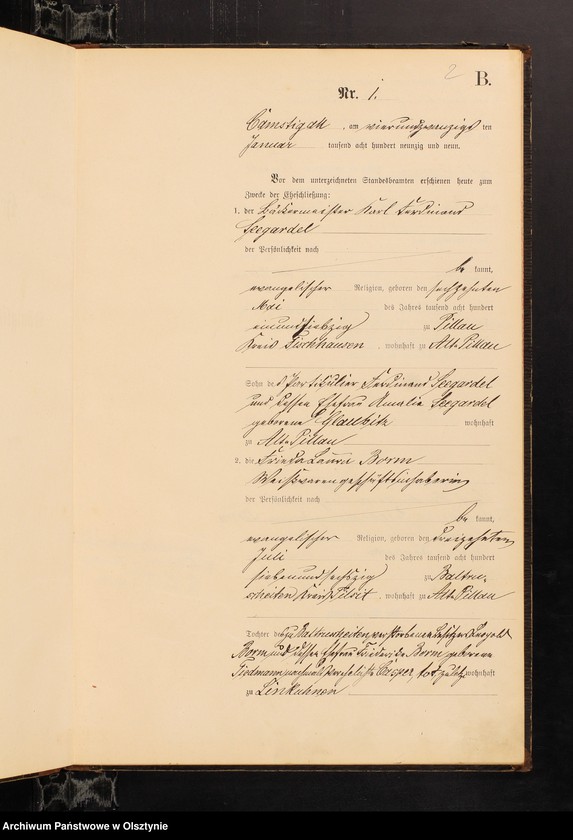 2
B.
Nr. 1.
Camstigall, am vierundzwanzigsten
Januar tausend acht hundert neunzig und neun.
Vor dem unterzeichneten Standesbeamten erschienen heute zum
Zwecke der Eheschließung:
1. der Bäckermeister Karl Ferdinand
Seegardel
der Persönlichkeit nach
be kannt,
evangelischer Religion, geboren den sechszehnten
Mai des Jahres tausend acht hundert
einundsiebzig zu Pillau
Kreis Fischhausen, wohnhaft zu Alt-Pillau
Sohn des Partikulier Ferdinand Seegardel
und dessen Ehefrau Amalie Seegardel
geborene Glaubitz wohnhaft
zu Alt-Pillau
2. die Frieda Laura Borm
Weißwarengeschäftsinhaberin
der Persönlichkeit nach
be kannt,
evangelischer Religion, geboren den dreizehnten
Juli des Jahres tausend acht hundert
siebenundsechszig zu Baltru-
scheiten Kreis Tilsit, wohnhaft zu Alt-Pillau
Tochter des zu Baltruscheiten verstorbenen Besitzer Leopold
Borm und dessen Ehefrau Friederike Borm geborene
Tiedmann, nachmals verehelichte Casper, wohnhaft
zu Linkuhnen
Archiwum Państwowe w Olsztynie